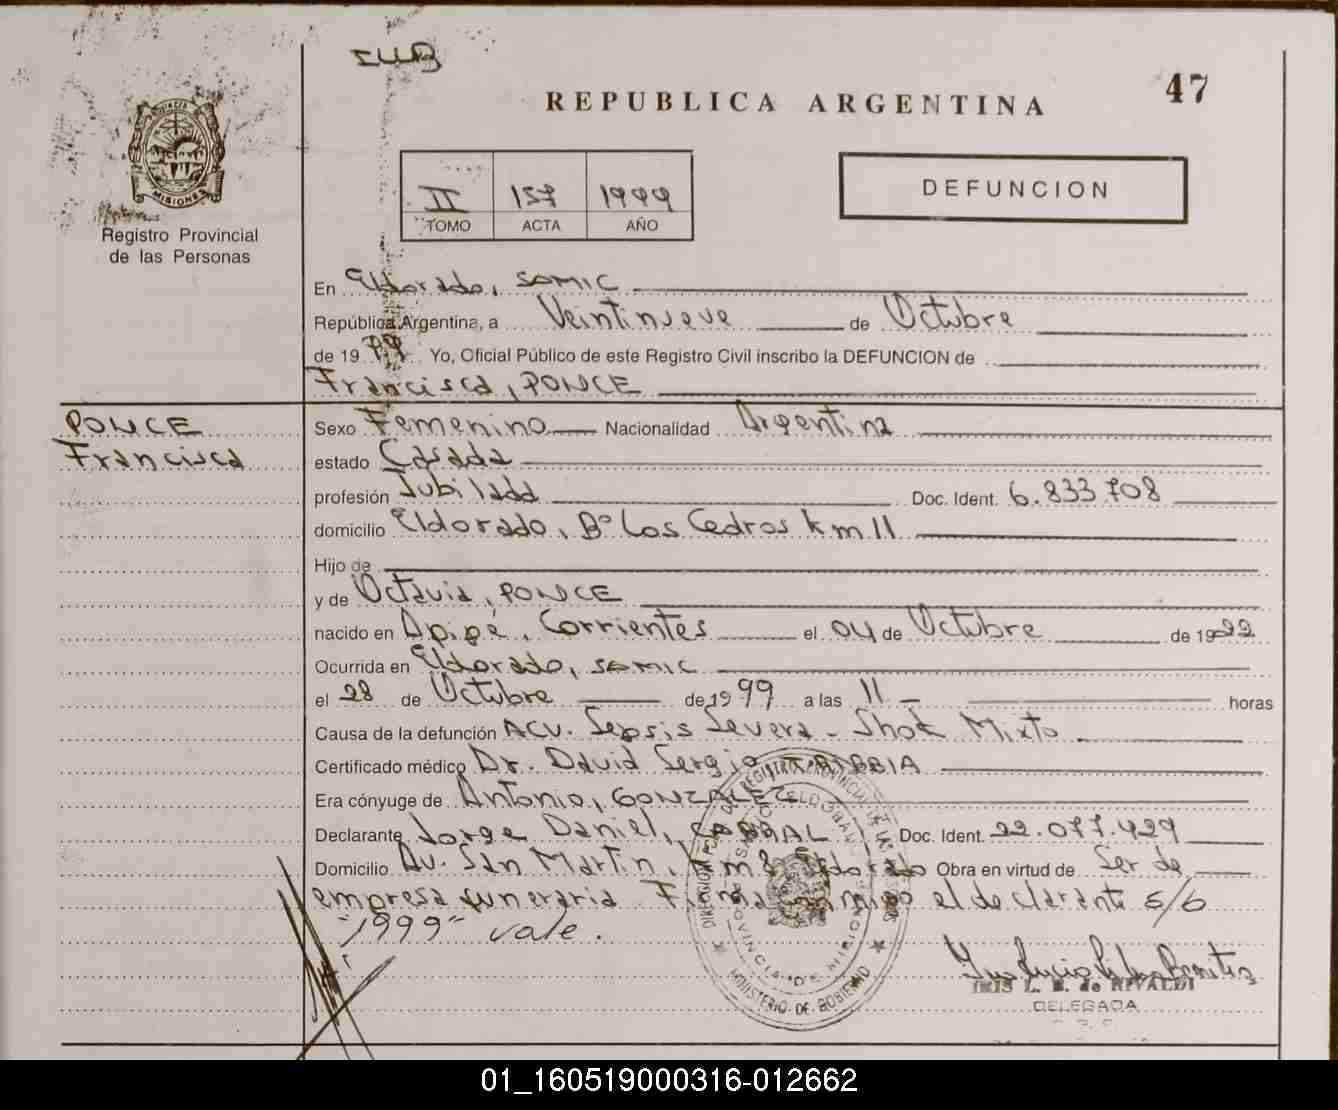 47
REPUBLICA ARGENTINA
DEFUNCION
II 157 1999
TOMO ACTA AÑO
MISIONES
Registro Provincial
de las Personas
En Eldorado, SAMIC
República Argentina, a Veintinueve de Octubre
de 1999 Yo, Oficial Público de este Registro Civil inscribo la DEFUNCION de
Francisca, PONCE
PONCE
Francisca
Sexo Femenino Nacionalidad Argentina
estado Casada
profesión Jubilada Doc. Ident. 6.833.708
domicilio Eldorado, Bº Los Cedros km 11
Hijo de
y de Octavia, PONCE
nacido en Apipé, Corrientes el 04 de Octubre de 1922
Ocurrida en Eldorado, SAMIC
el 28 de Octubre de 1999 a las 11 horas
Causa de la defunción ACV. Sepsis Severa - Shok Mixto
Certificado médico Dr. David Sergio
Era cónyuge de Antonio, GONZALEZ
Declarante Jorge Daniel, CABRAL Doc. Ident. 22.077.429
Domicilio Av. San Martin, km 8 Eldorado Obra en virtud de Ser de
empresa funeraria Firma conmigo el declarante s/b
"1999" vale.
IRIS L. B. de RIVALDI
DELEGADA
MINISTERIO DE GOBIERNO
01_160519000316-012662